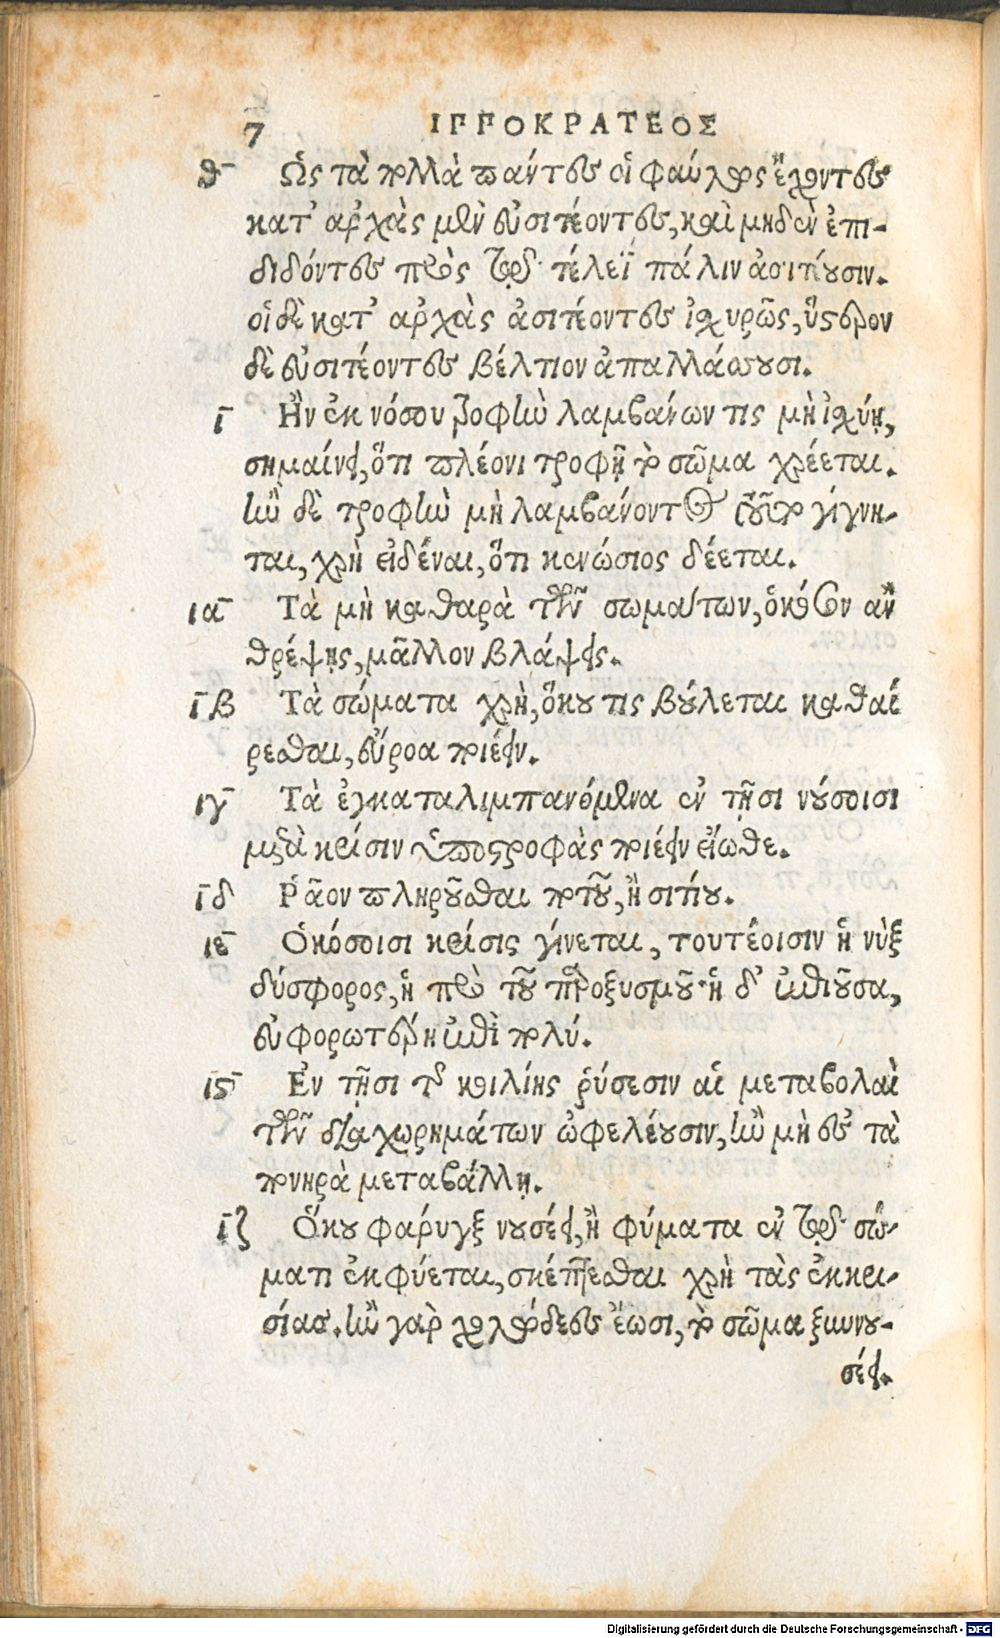 7 ΙΠΠΟΚΡΑΤΕΟΣ
θ Ὡς τὰ πολλὰ πάντες οἱ φαύλως ἔχοντες
κατ' ἀρχὰς μὲν εὐσιτέοντες, καὶ μηδὲν ἐπι-
διδόντες πρὸς τῷ τέλεϊ πάλιν ἀσιτέουσιν.
οἱ δὲ κατ' ἀρχὰς ἀσιτέοντες ἰσχυρῶς, ὕστερον
δὲ εὐσιτέοντες βέλτιον ἀπαλλάσσουσι.
ι Ἢν ἐκ νόσου τροφὴν λαμβάνων τις μὴ ἰσχύῃ,
σημαίνει, ὅτι πλέονι τροφῇ τὸ σῶμα χρέεται.
ἢν δὲ τροφὴν μὴ λαμβάνοντος τοῦτο γίγνη-
ται, χρὴ εἰδέναι, ὅτι κενώσιος δέεται.
ια Τὰ μὴ καθαρὰ τῶν σωμάτων, ὁκόσον ἂν
θρέψῃς, μᾶλλον βλάψεις.
ιβ Τὰ σώματα χρὴ, ὅκου τις βούλεται καθαί
ρεσθαι, εὔροα ποιέειν.
ιγ Τὰ ἐγκαταλιμπανόμενα ἐν τῇσι νούσοισι
μετὰ κρίσιν ὑποστροφὰς ποιέειν εἴωθε.
ιδ Ῥᾷον πληροῦσθαι ποτοῦ, ἢ σιτίου.
ιε Ὁκόσοισι κρίσις γίνεται, τουτέοισιν ἡ νὺξ
δύσφορος, ἡ πρὸ τοῦ παροξυσμοῦ· ἡ δ' ἐπιοῦσα,
εὐφορωτέρη ἐπὶ πολύ.
ιϛ Ἐν τῇσι τῆς κοιλίης ῥύσεσιν αἱ μεταβολαὶ
τῶν διαχωρημάτων ὠφελέουσιν, ἢν μὴ ἐς τὰ
πονηρὰ μεταβάλλῃ.
ιζ Ὅκου φάρυγξ νουσέει, ἢ φύματα ἐν τῷ σώ-
ματι ἐκφύεται, σκέπτεσθαι χρὴ τὰς ἐκκρι-
σίας. ἢν γὰρ χολώδεες ἔωσι, τὸ σῶμα ξυννου-
σέει.
Digitalisierung gefördert durch die Deutsche Forschungsgemeinschaft - DFG